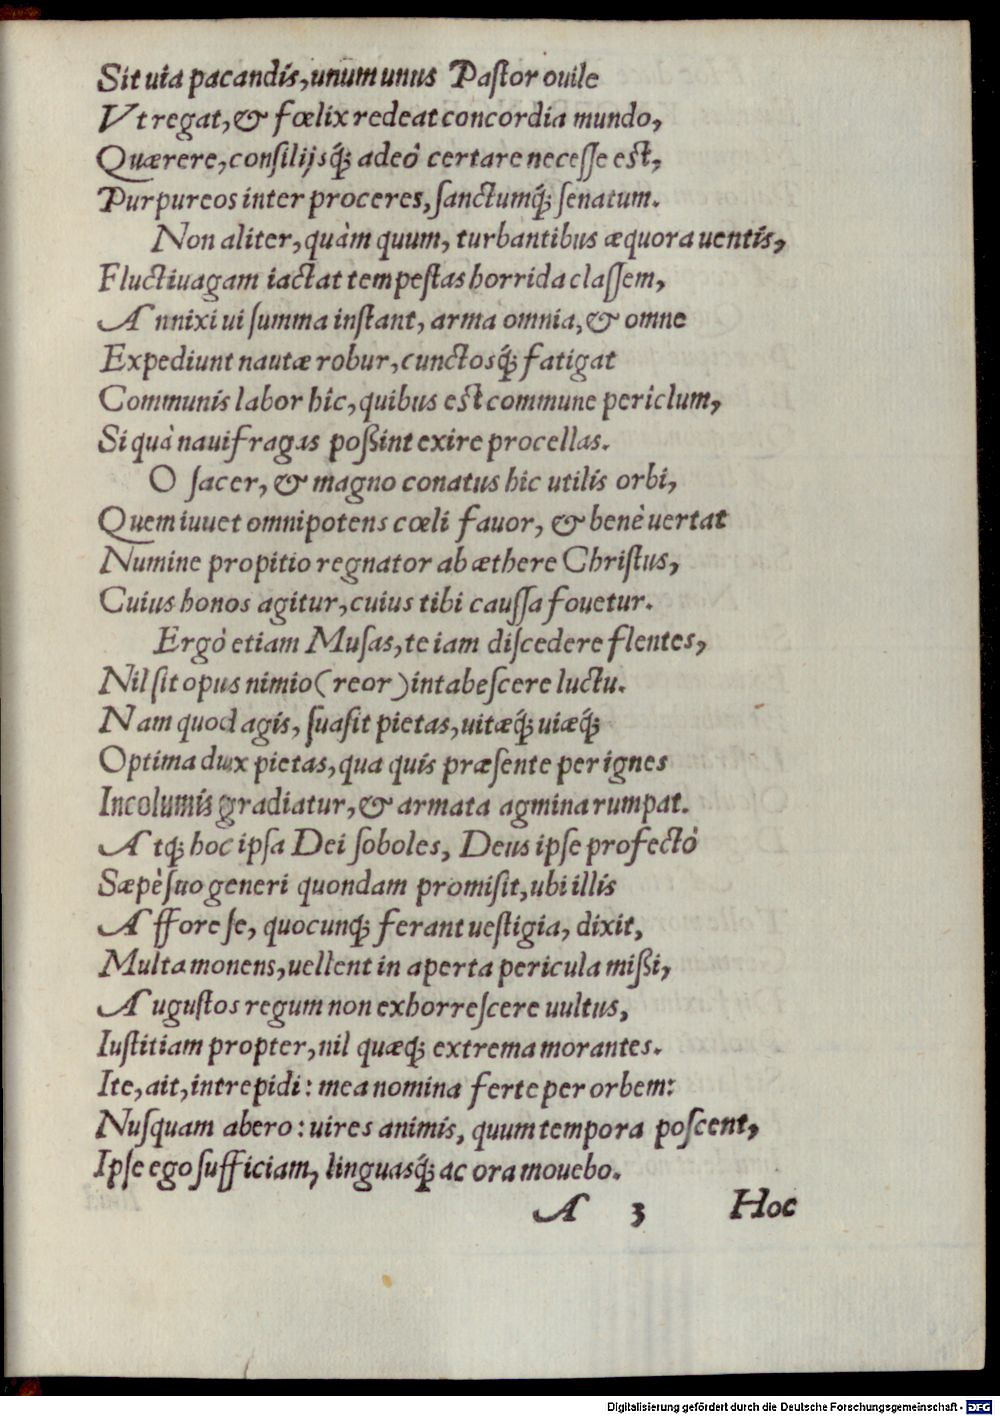 Sit uia pacandis, unum unus Pastor ouile
Vt regat, & fœlix redeat concordia mundo,
Quærere, consilijsq́; adeò certare necesse est,
Purpureos inter proceres, sanctumq́; senatum.
Non aliter, quàm quum, turbantibus æquora uentis,
Fluctiuagam iactat tempestas horrida classem,
Annixi ui summa instant, arma omnia, & omne
Expediunt nautæ robur, cunctosq́; fatigat
Communis labor hic, quibus est commune periclum,
Si quà nauifragas poßint exire procellas.
O sacer, & magno conatus hic utilis orbi,
Quem iuuet omnipotens cœli fauor, & benè uertat
Numine propitio regnator ab æthere Christus,
Cuius honos agitur, cuius tibi caussa fouetur.
Ergò etiam Musas, te iam discedere flentes,
Nil sit opus nimio (reor) intabescere luctu.
Nam quod agis, suasit pietas, uitæq́; uiæq́;
Optima dux pietas, qua quis præsente per ignes
Incolumis gradiatur, & armata agmina rumpat.
Atq; hoc ipsa Dei soboles, Deus ipse profectò
Sæpè suo generi quondam promisit, ubi illis
Affore se, quocunq; ferant uestigia, dixit,
Multa monens, uellent in aperta pericula mißi,
Augustos regum non exhorrescere uultus,
Iustitiam propter, nil quæq; extrema morantes.
Ite, ait, intrepidi: mea nomina ferte per orbem:
Nusquam abero: uires animis, quum tempora poscent,
Ipse ego sufficiam, linguasq́; ac ora mouebo.
A 3 Hoc
Digitalisierung gefördert durch die Deutsche Forschungsgemeinschaft - DFG